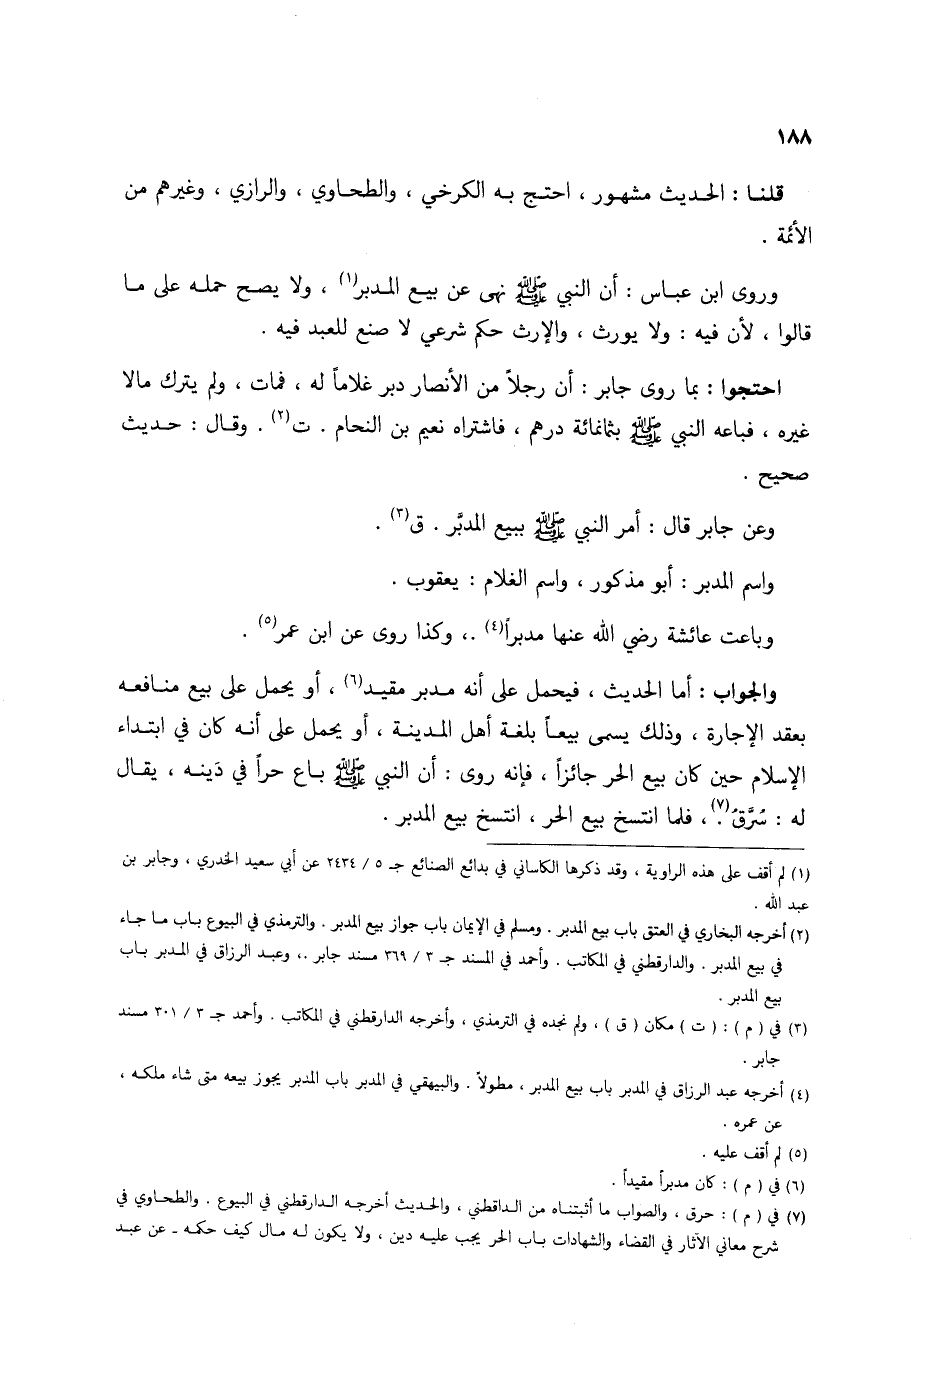 ١٨٨
قلنـا : الحـديث مشهـور ، احتـج بـه الكرخي ، والطحـاوي ، والرازي ، وغيرهم من
الأئمة .
وروى ابن عبـاس : أن النبي ﷺ نهى عن بيـع المـدبر(١) ، ولا يصـح حملـه على مـا
قالوا ، لأن فيه : ولا يورث ، والإرث حكم شرعي لا صنع للعبد فيه .
احتجوا : بما روى جابر : أن رجلاً من الأنصار دبر غلاماً له ، فمات ، ولم يترك مالا
غيره ، فباعه النبي ﷺ بثمانمائة درهم ، فاشتراه نعيم بن النحام . ت(٢) . وقـال : حـديث
صحيح .
وعن جابر قال : أمر النبي ﷺ ببيع المدبَّر . ق(٣) .
واسم المدبر : أبو مذكور ، واسم الغلام : يعقوب .
وباعت عائشة رضي الله عنها مدبراً(٤) .، وكذا روى عن ابن عمر(٥) .
والجواب : أما الحديث ، فيحمل على أنه مـدبر مقيـد(٦) ، أو يحمل على بيع منـافعـه
بعقد الإجارة ، وذلك يسمى بيعـاً بلغـة أهل المـدينـة ، أو يحمل على أنـه كان في ابتـداء
الإسلام حين كان بيع الحر جائزاً ، فإنه روى : أن النبي ﷺ بـاع حراً في دَينـه ، يقـال
له : سُرَّقُ(٧).، فلما انتسخ بيع الحر ، انتسخ بيع المدبر .
(١) لم أقف على هذه الراوية ، وقد ذكرها الكاساني في بدائع الصنائع جـ ٥ / ٢٤٣٤ عن أبي سعيد الخدري ، وجابر بن
عبد الله .
(٢) أخرجه البخاري في العتق باب بيع المدبر . ومسلم في الإيمان باب جواز بيع المدبر . والترمذي في البيوع بـاب مـا جـاء
في بيع المدبر . والدارقطني في المكاتب . وأحمد في المسند جـ ٣ / ٣٦٩ مسند جابر .، وعبـد الرزاق في المـدبر بـاب
بيع المدبر .
(٣) في ( م ) : ( ت ) مكان ( ق ) ، ولم نجده في الترمذي ، وأخرجه الدارقطني في المكاتب . وأحمد جـ ٣ / ٣٠١ مسند
جابر .
(٤) أخرجه عبد الرزاق في المدبر باب بيع المدبر ، مطولاً . والبيهقي في المدبر باب المدبر يجوز بيعه متى شاء ملكـه ،
عن عمره .
(٥) لم أقف عليه .
(٦) في ( م ) : كان مدبراً مقيداً .
(٧) في ( م ) : حرق ، والصواب ما أثبتنـاه من الـداقطني ، والحـديث أخرجـه الـدارقطني في البيوع . والطحـاوي في
شرح معاني الآثار في القضاء والشهادات بـاب الحر يجب عليـه دين ، ولا يكون لـه مـال كيف حكمـه ـ عن عبـد